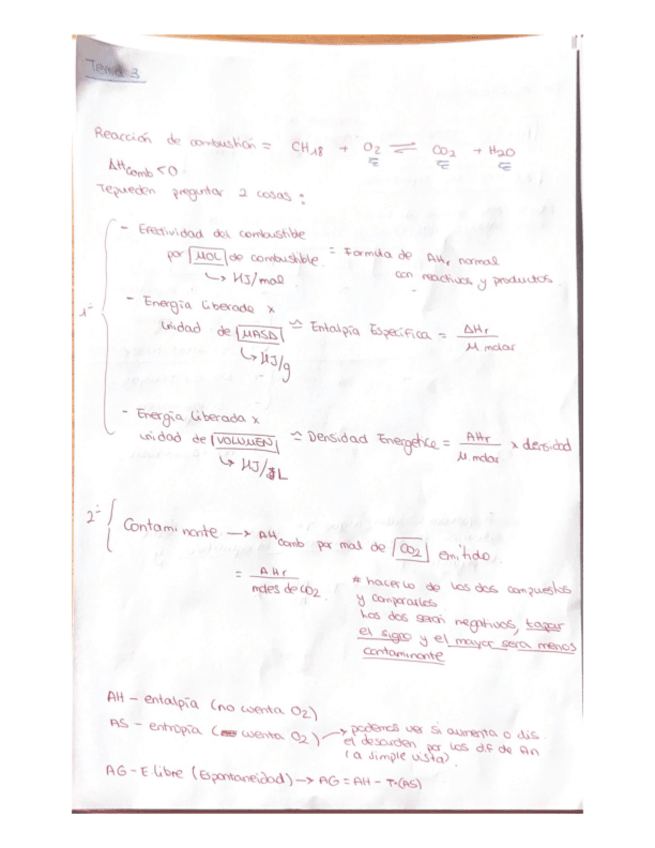 Tema 3
Reacción de combustión = CH18 + O2 ⇌ CO2 + H2O
ΔHcomb < 0
Te pueden preguntar 2 cosas :
1- - Efectividad del combustible
por MOL de combustible = Formula de ΔHr normal
↳ KJ/mol con reactivos y productos.
- Energía liberada x
unidad de MASA ≃ Entalpía Específica = ΔHr / M molar
↳ KJ/g
- Energía liberada x
unidad de VOLUMEN ≃ Densidad Energetica = ΔHr / M molar x densidad
↳ KJ/L
2- Contaminante → ΔHcomb por mol de CO2 emitido.
= ΔHr / moles de CO2
* hacerlo de los dos compuestos
y compararlos.
Los dos serán negativos, tapar
el signo y el mayor sera menos
contaminante
ΔH - entalpía (no cuenta O2)
ΔS - entropía ( cuenta O2) → podemos ver si aumenta o dis.
el desorden por los dif de Δn
(a simple vista).
ΔG - E. libre (Espontaneidad) → ΔG = ΔH - T·(ΔS)